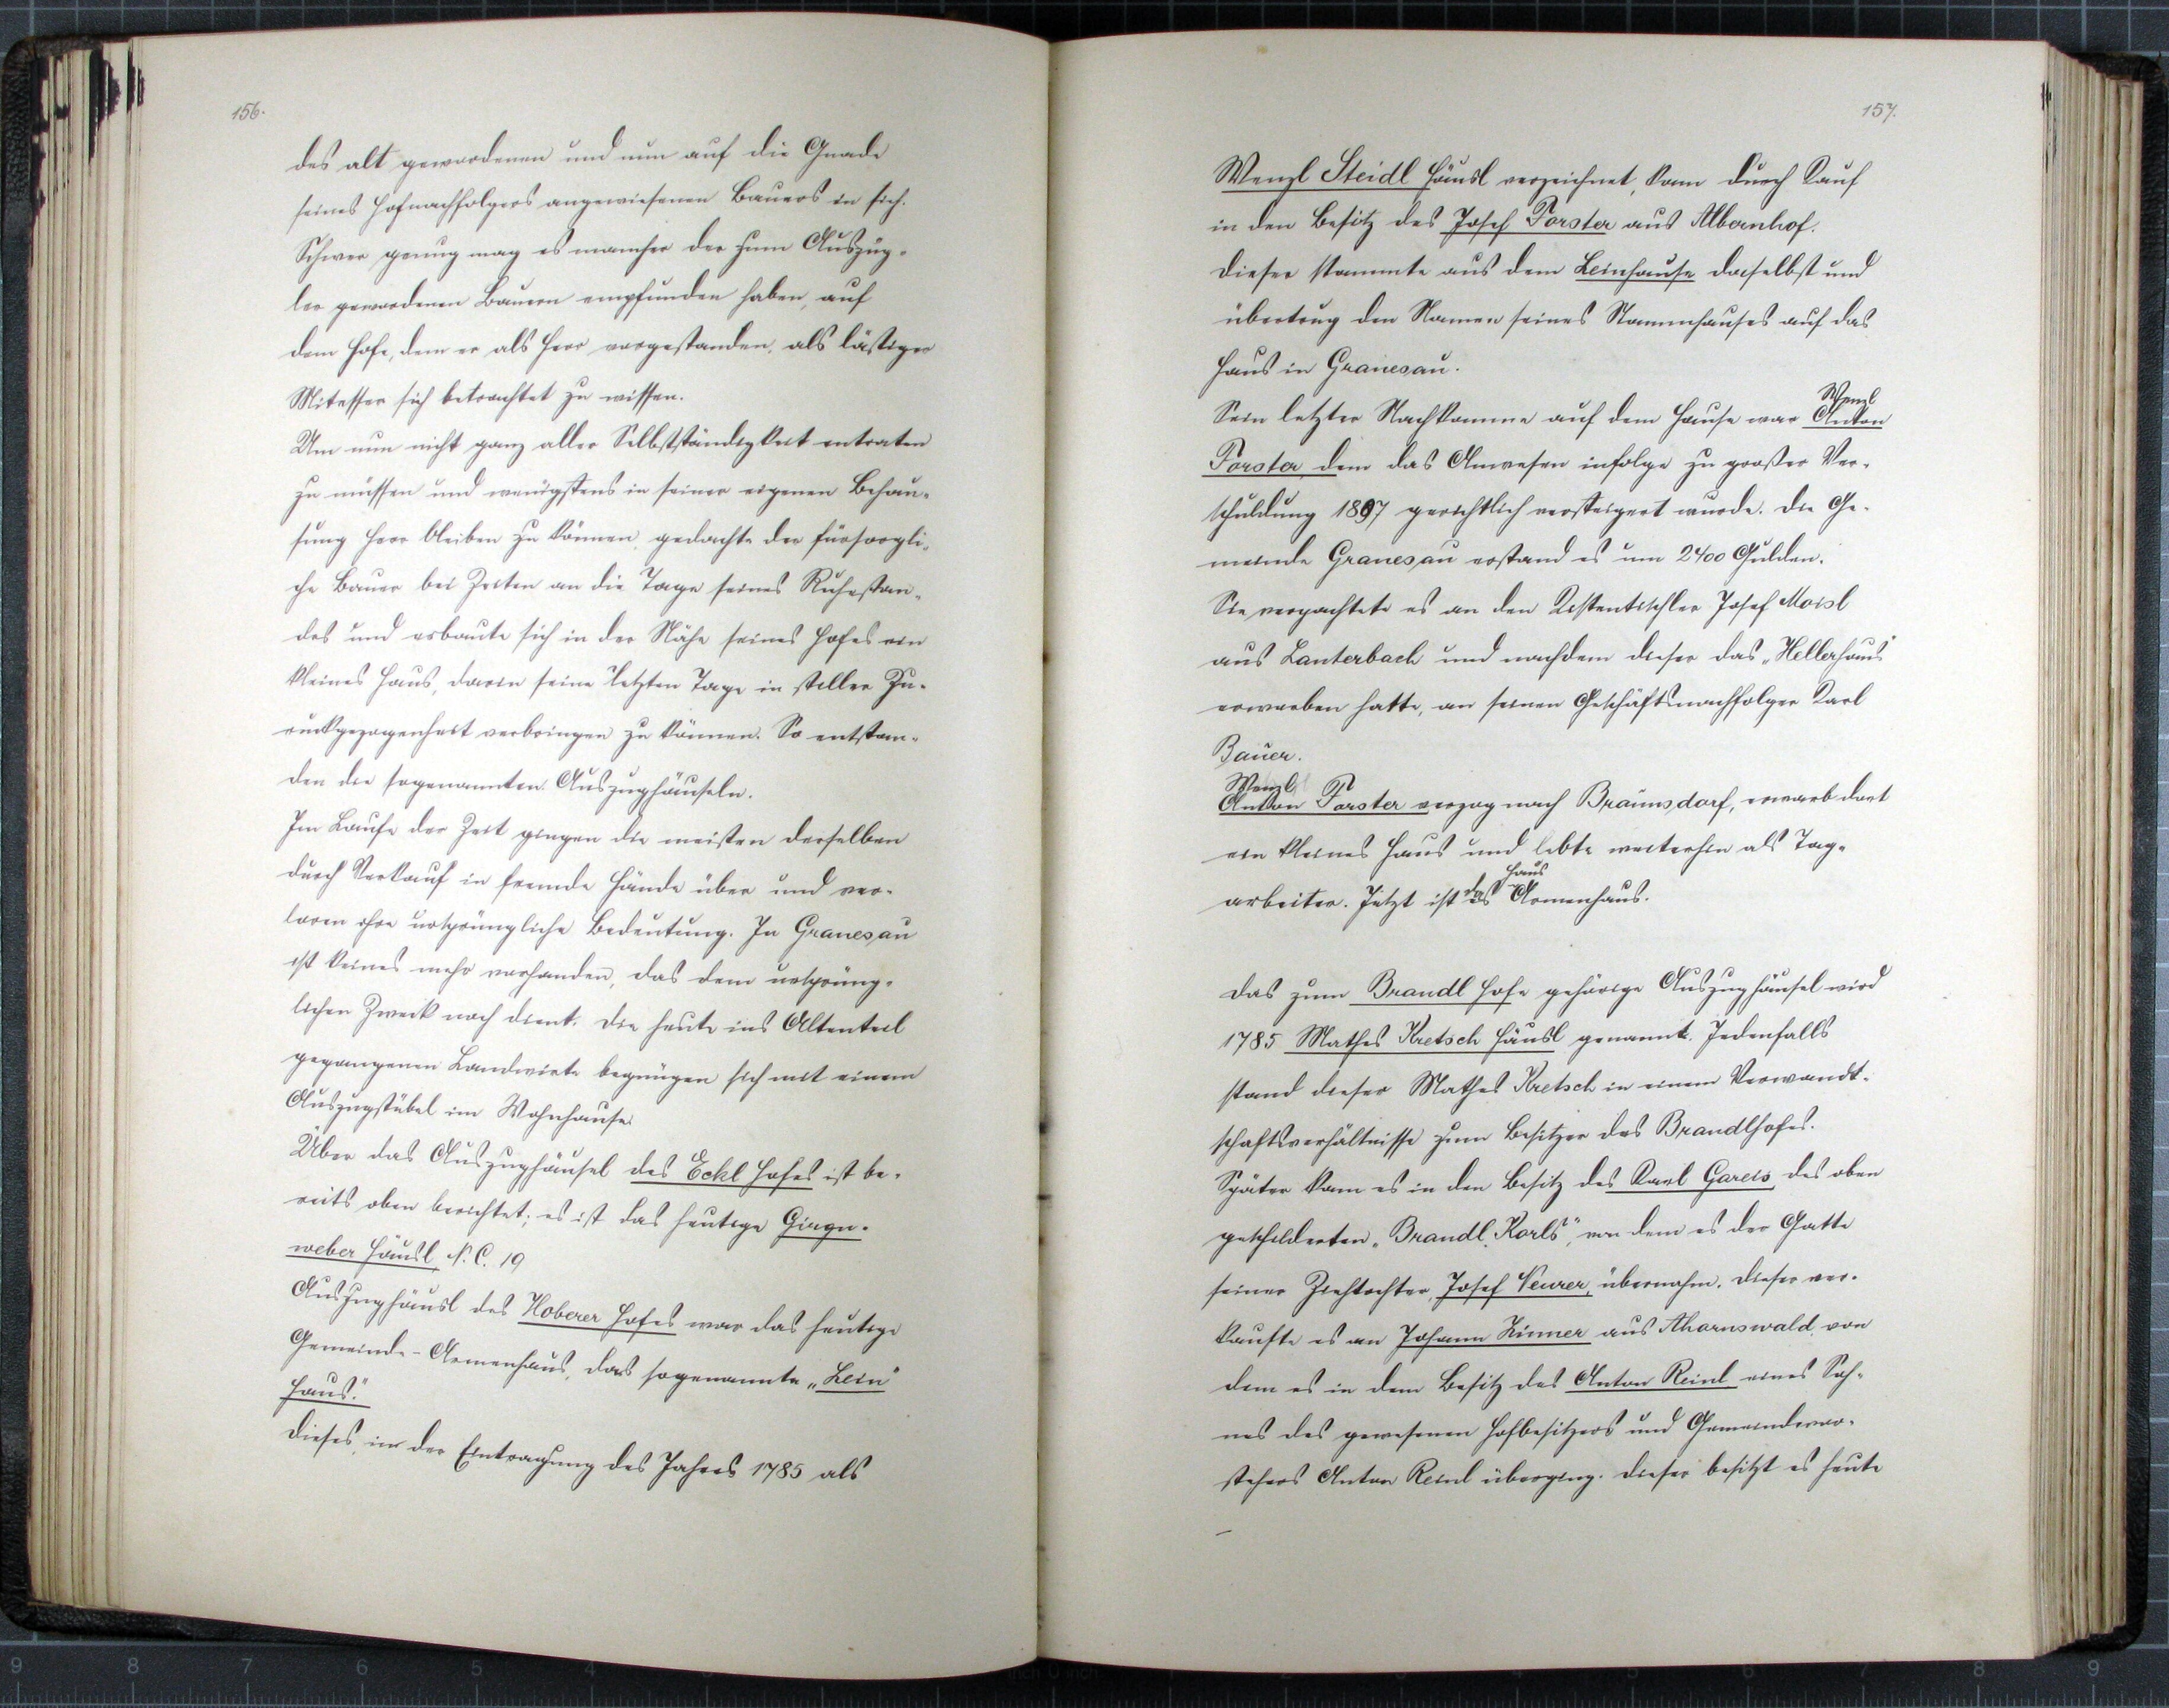 156.
des alt gewordenen und nun auf die Gnade
seines Hofnachfolgers angewiesenen Bauers in sich.
Schwer genug mag es mancher der zum Auszüg-
ler gewordenen Bauern empfunden haben, auf
dem Hofe, dem er als Herr vorgestanden, als lästiger
Mitesser sich betrachtet zu wissen.
Um nun nicht ganz aller Selbstständigkeit entraten
zu müssen und wenigstens in seiner eigenen Behau-
sung Herr bleiben zu können, gedachte der fürsorgli-
che Bauer bei Zeiten an die Tage seines Ruhestan-
des und erbaute sich in der Nähe seines Hofes ein
kleines Haus, darin seine letzten Tage in stiller Zu-
rückgezogenheit verbringen zu können. So entstan-
den die sogenannten Auszughäuseln.
Im Laufe der Zeit gingen die meisten derselben
durch Verkauf in fremde Hände über und ver-
loren ihre ursprüngliche Bedeutung. In Granesau
ist keines mehr vorhanden, das dem ursprüng-
lichen Zweck noch dient. Die heute ins Altenteil
gegangenen Landwirte begnügen sich mit einem
Auszugstübel im Wohnhause.
Über das Auszughäusel des Eckl Hofes ist be-
reits oben berichtet; es ist das heutige Girgn-
weber Häusl N.C. 19
Auszughäusl des Hoberer Hofes war das heutige
Gemeinde-Armenhaus, das sogenannte „Lein"
Haus."
Dieses, in der Eintragung des Jahres 1785 als
157.
Wenzl Steidl Häusl verzeichnet, kam durch Kauf
in den Besitz des Josef Forster aus Albernhof.
Dieser stammte aus dem Leinhause daselbst und
übertrug den Namen seines Stammhauses auf das
Haus in Granesau.
Wenzl
Sein letzter Nachkomme auf dem Hause war Anton
Forster, dem das Anwesen infolge zu großer Ver-
schuldung 1897 gerichtlich versteigert wurde. Die Ge-
meinde Granesau erstand es um 2400 Gulden.
Sie verpachtete es an den Kistentischler Josef Moisl
aus Lauterbach und nachdem dieser das „Hellerhaus"
erworben hatte, an seinen Geschäftsnachfolger Karl
Bauer.
Wenzl
Anton Forster verzog nach Braunsdorf, erwarb dort
ein kleines Haus und lebte weiterhin als Tag-
Haus
arbeiter. Jetzt ist das Armenhaus.
Das zum Brandl Hofe gehörige Auszughäusel wird
1785 Mathes Kretsch Häusl genannt. Jedenfalls
stand dieser Mathes Kretsch in einem Verwandt-
schaftsverhältnisse zum Besitzer des Brandlhofes.
Später kam es in den Besitz des Karl Gareis, des oben
geschilderten „Brandl Karls", von dem es der Gatte
seiner Ziehtochter, Josef Neurer, übernahm. Dieser ver-
kaufte es an Johann Zinner aus Aharnswald, von
dem es in dem Besitz des Anton Reinl eines Soh-
nes des gewesenen Hofbesitzers und Gemeindevor-
stehers Anton Reinl überging. Dieser besitzt es heute